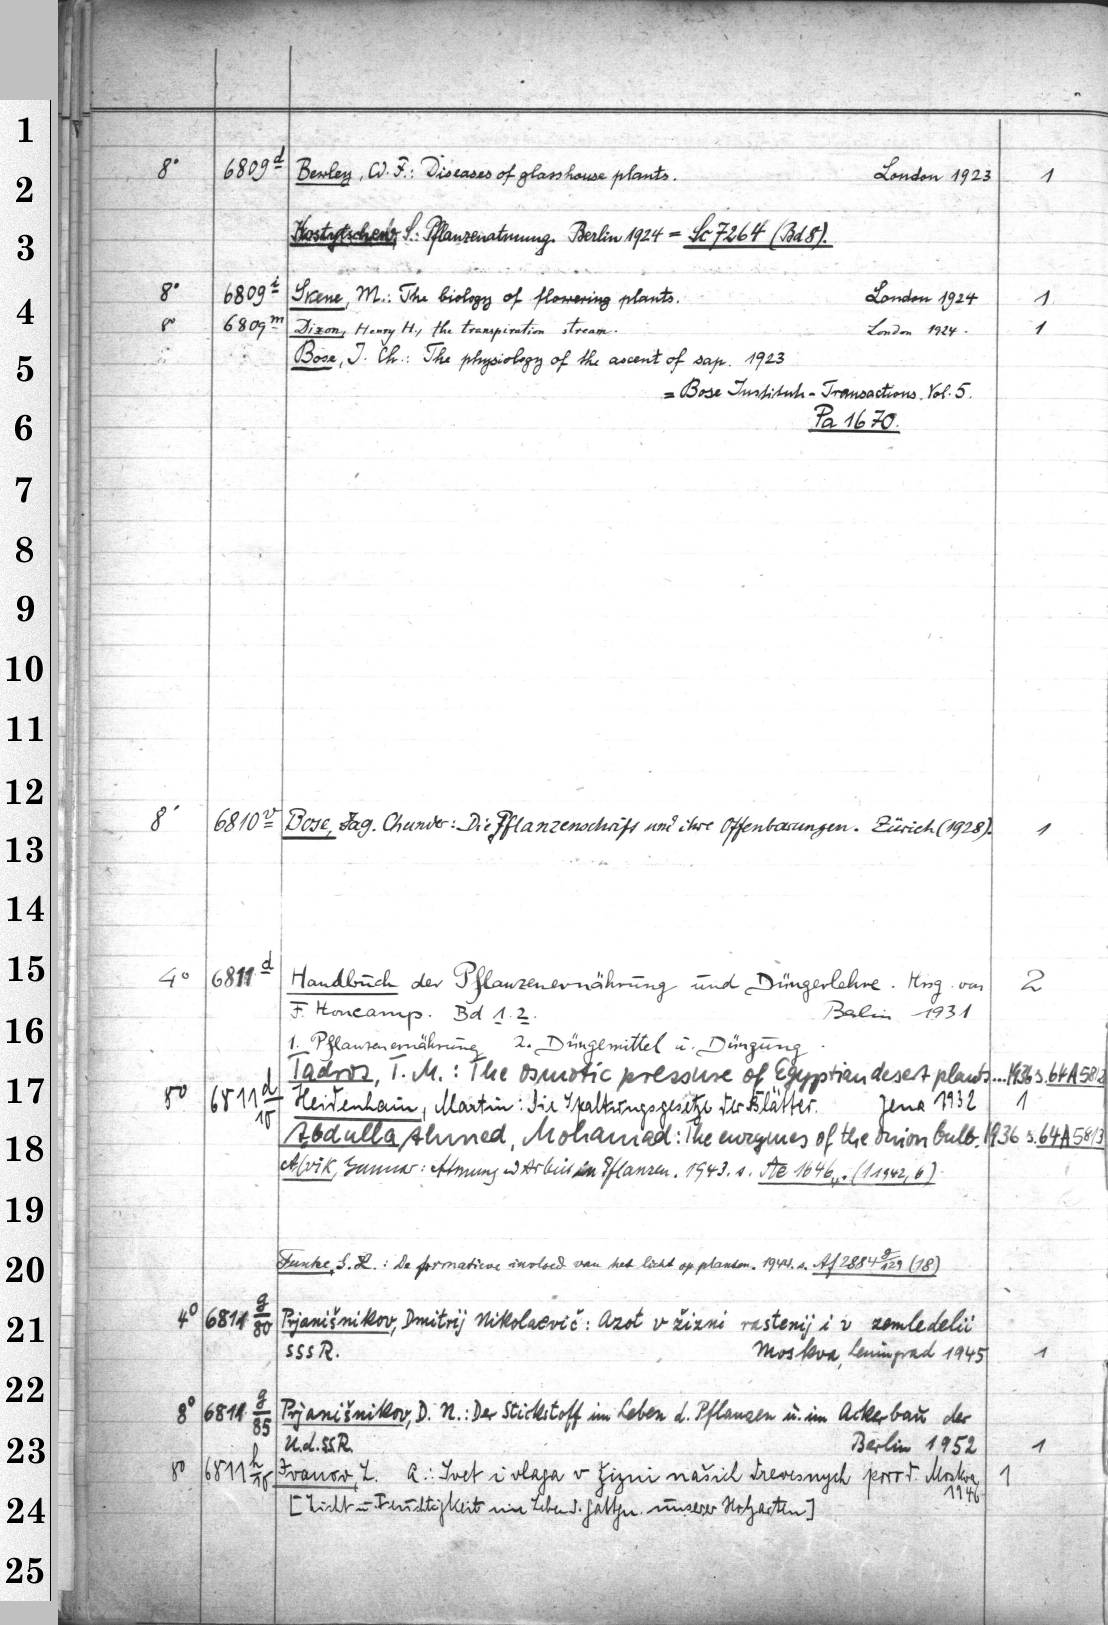 1
8° 6809d Bewley, W. F.: Diseases of glasshouse plants. London 1923 1
2
Kostytschew, S.: Pflanzenatmung. Berlin 1924 = Sc 7264 (Bd 8).
3
8° 6809i Skene, M.: The biology of flowering plants. London 1924 1
4
8° 6809m Dixon, Henry H., the transpiration stream. London 1924. 1
Bose, J. Ch.: The physiology of the ascent of sap. 1923
5
= Bose Institute - Transactions. Vol. 5.
Pa 1670.
6
7
8
9
10
11
12
8° 6810v Bose, Jag. Chunder: Die Pflanzenschrift und ihre Offenbarungen. Zürich (1928). 1
13
14
15
4° 6811d Handbuch der Pflanzenernährung und Düngerlehre. Hrsg. von 2
F. Honcamp. Bd 1. 2. Berlin 1931
16
1. Pflanzenernährung 2. Düngemittel u. Düngung.
Tadros, T. M.: The osmotic pressure of Egyptian desert plants... 1936 s. 64 A 5812
17
8° 6811d/15 Heidenhain, Martin: Die Spaltungsgesetze der Blätter. Jena 1932 1
Abdulla Ahmed, Mohamad: The enzymes of the onion bulb. 1936 s. 64 A 5813
18
Gunnar: Atmung u Arbeit in Pflanzen. 1943. s. Ae 1646,,. (1 1942, 6).
19
Funke, G. L.: De formatieve invloed van het licht op planten. 1944. s. Af 2884 g/129 (18)
20
4° 6811 g/80 Prjanišnikov, Dmitrij Nikolaevič: Azot v žizni rastenij i v zemledelii
21
SSSR. Moskva, Leningrad 1945 1
22
8° 6811 g/85 Prjanišnikov, D. N.: Der Stickstoff im Leben d. Pflanzen u. im Ackerbau der
U.d.SSR. Berlin 1952 1
23
8° 6811 h/15 Ivanov, L. A.: Svet i vlaga v žizni našich drevesnych porod. Moskva 1946 1
24
[Licht u Feuchtigkeit im Leben d. Gattgn. unserer Holzarten]
25